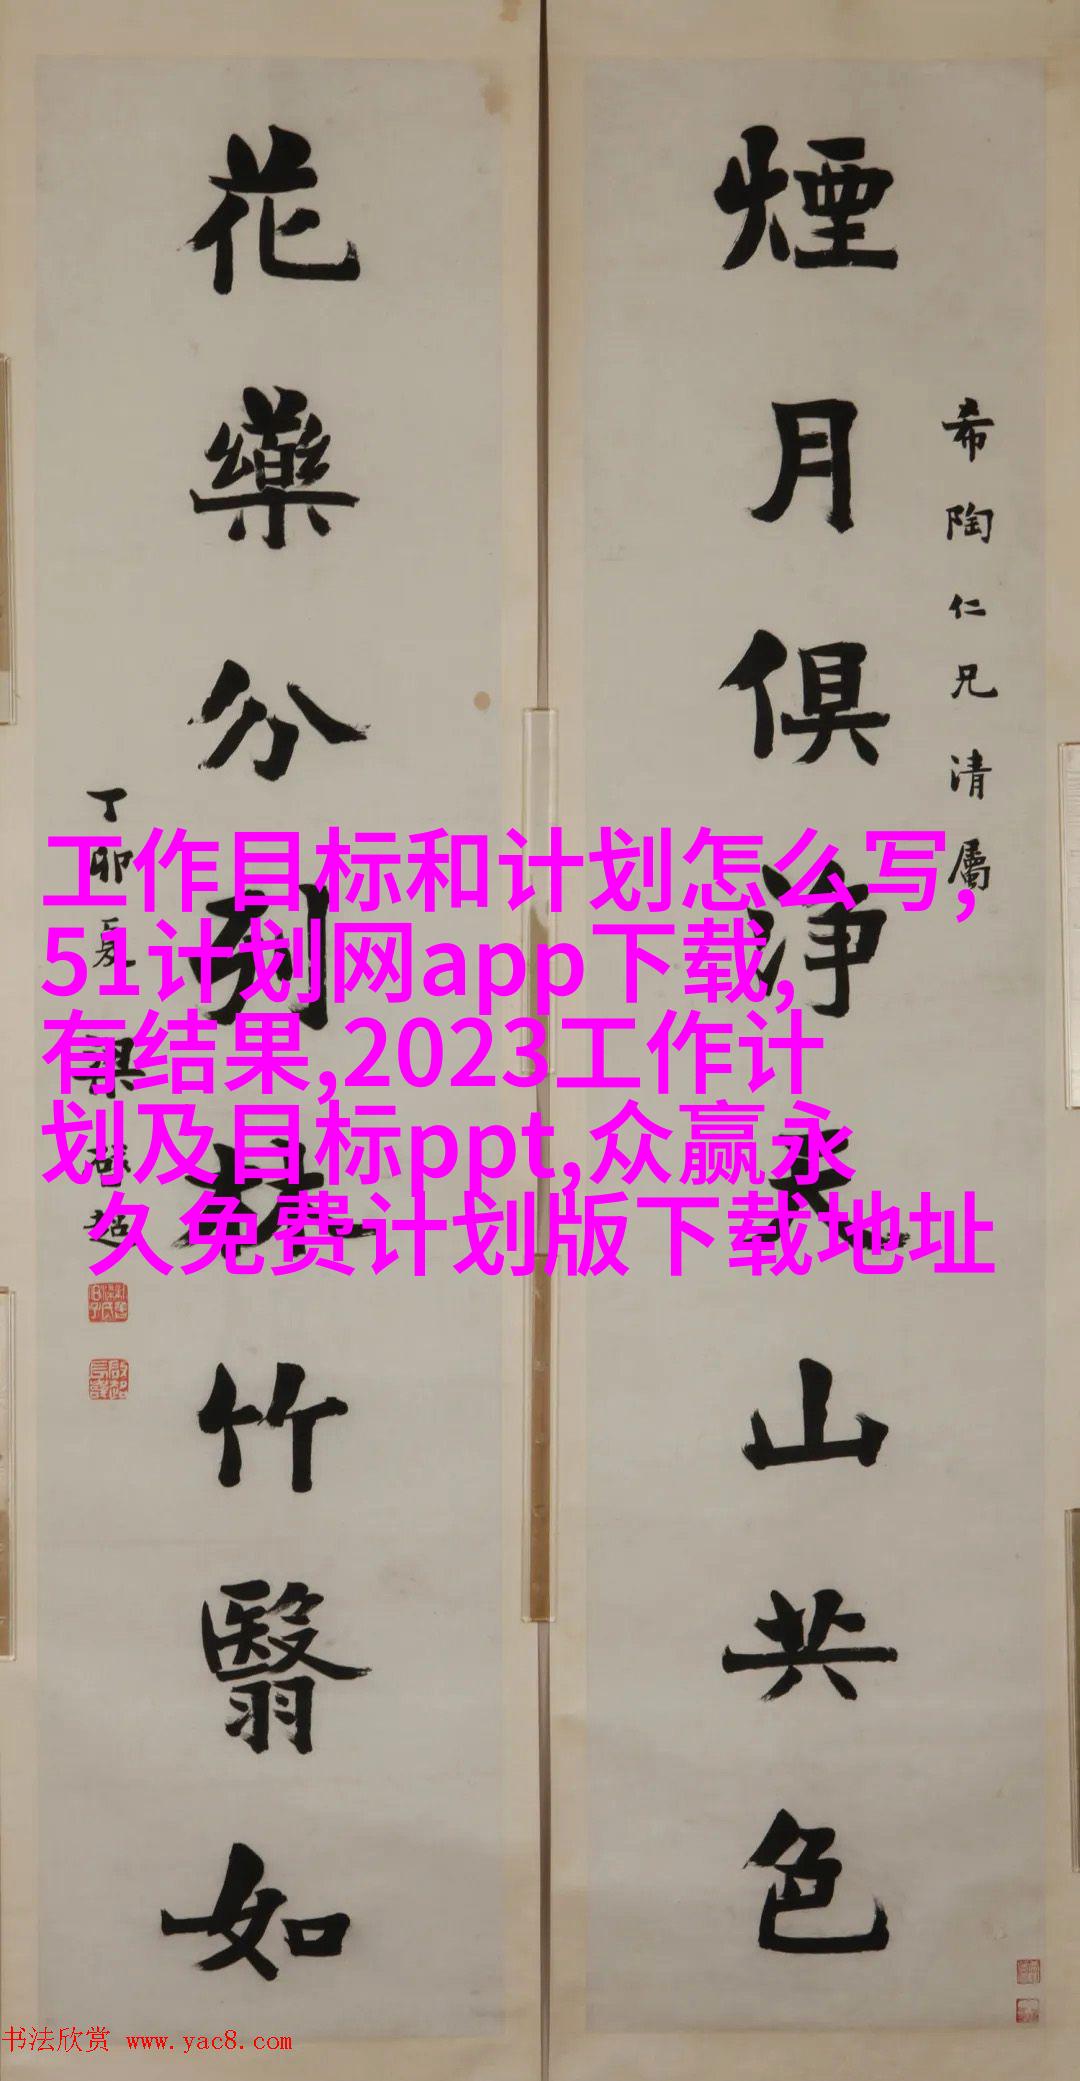 希陶仁兄清屬
煙月俱淨天山共色
花藥分列林竹翳如
丁卯夏梁啟超
工作目标和计划怎么写,
51计划网app下载,
有结果,2023工作计
划及目标ppt,众赢永
久免费计划版下载地址
书法欣赏 www.yac8.com